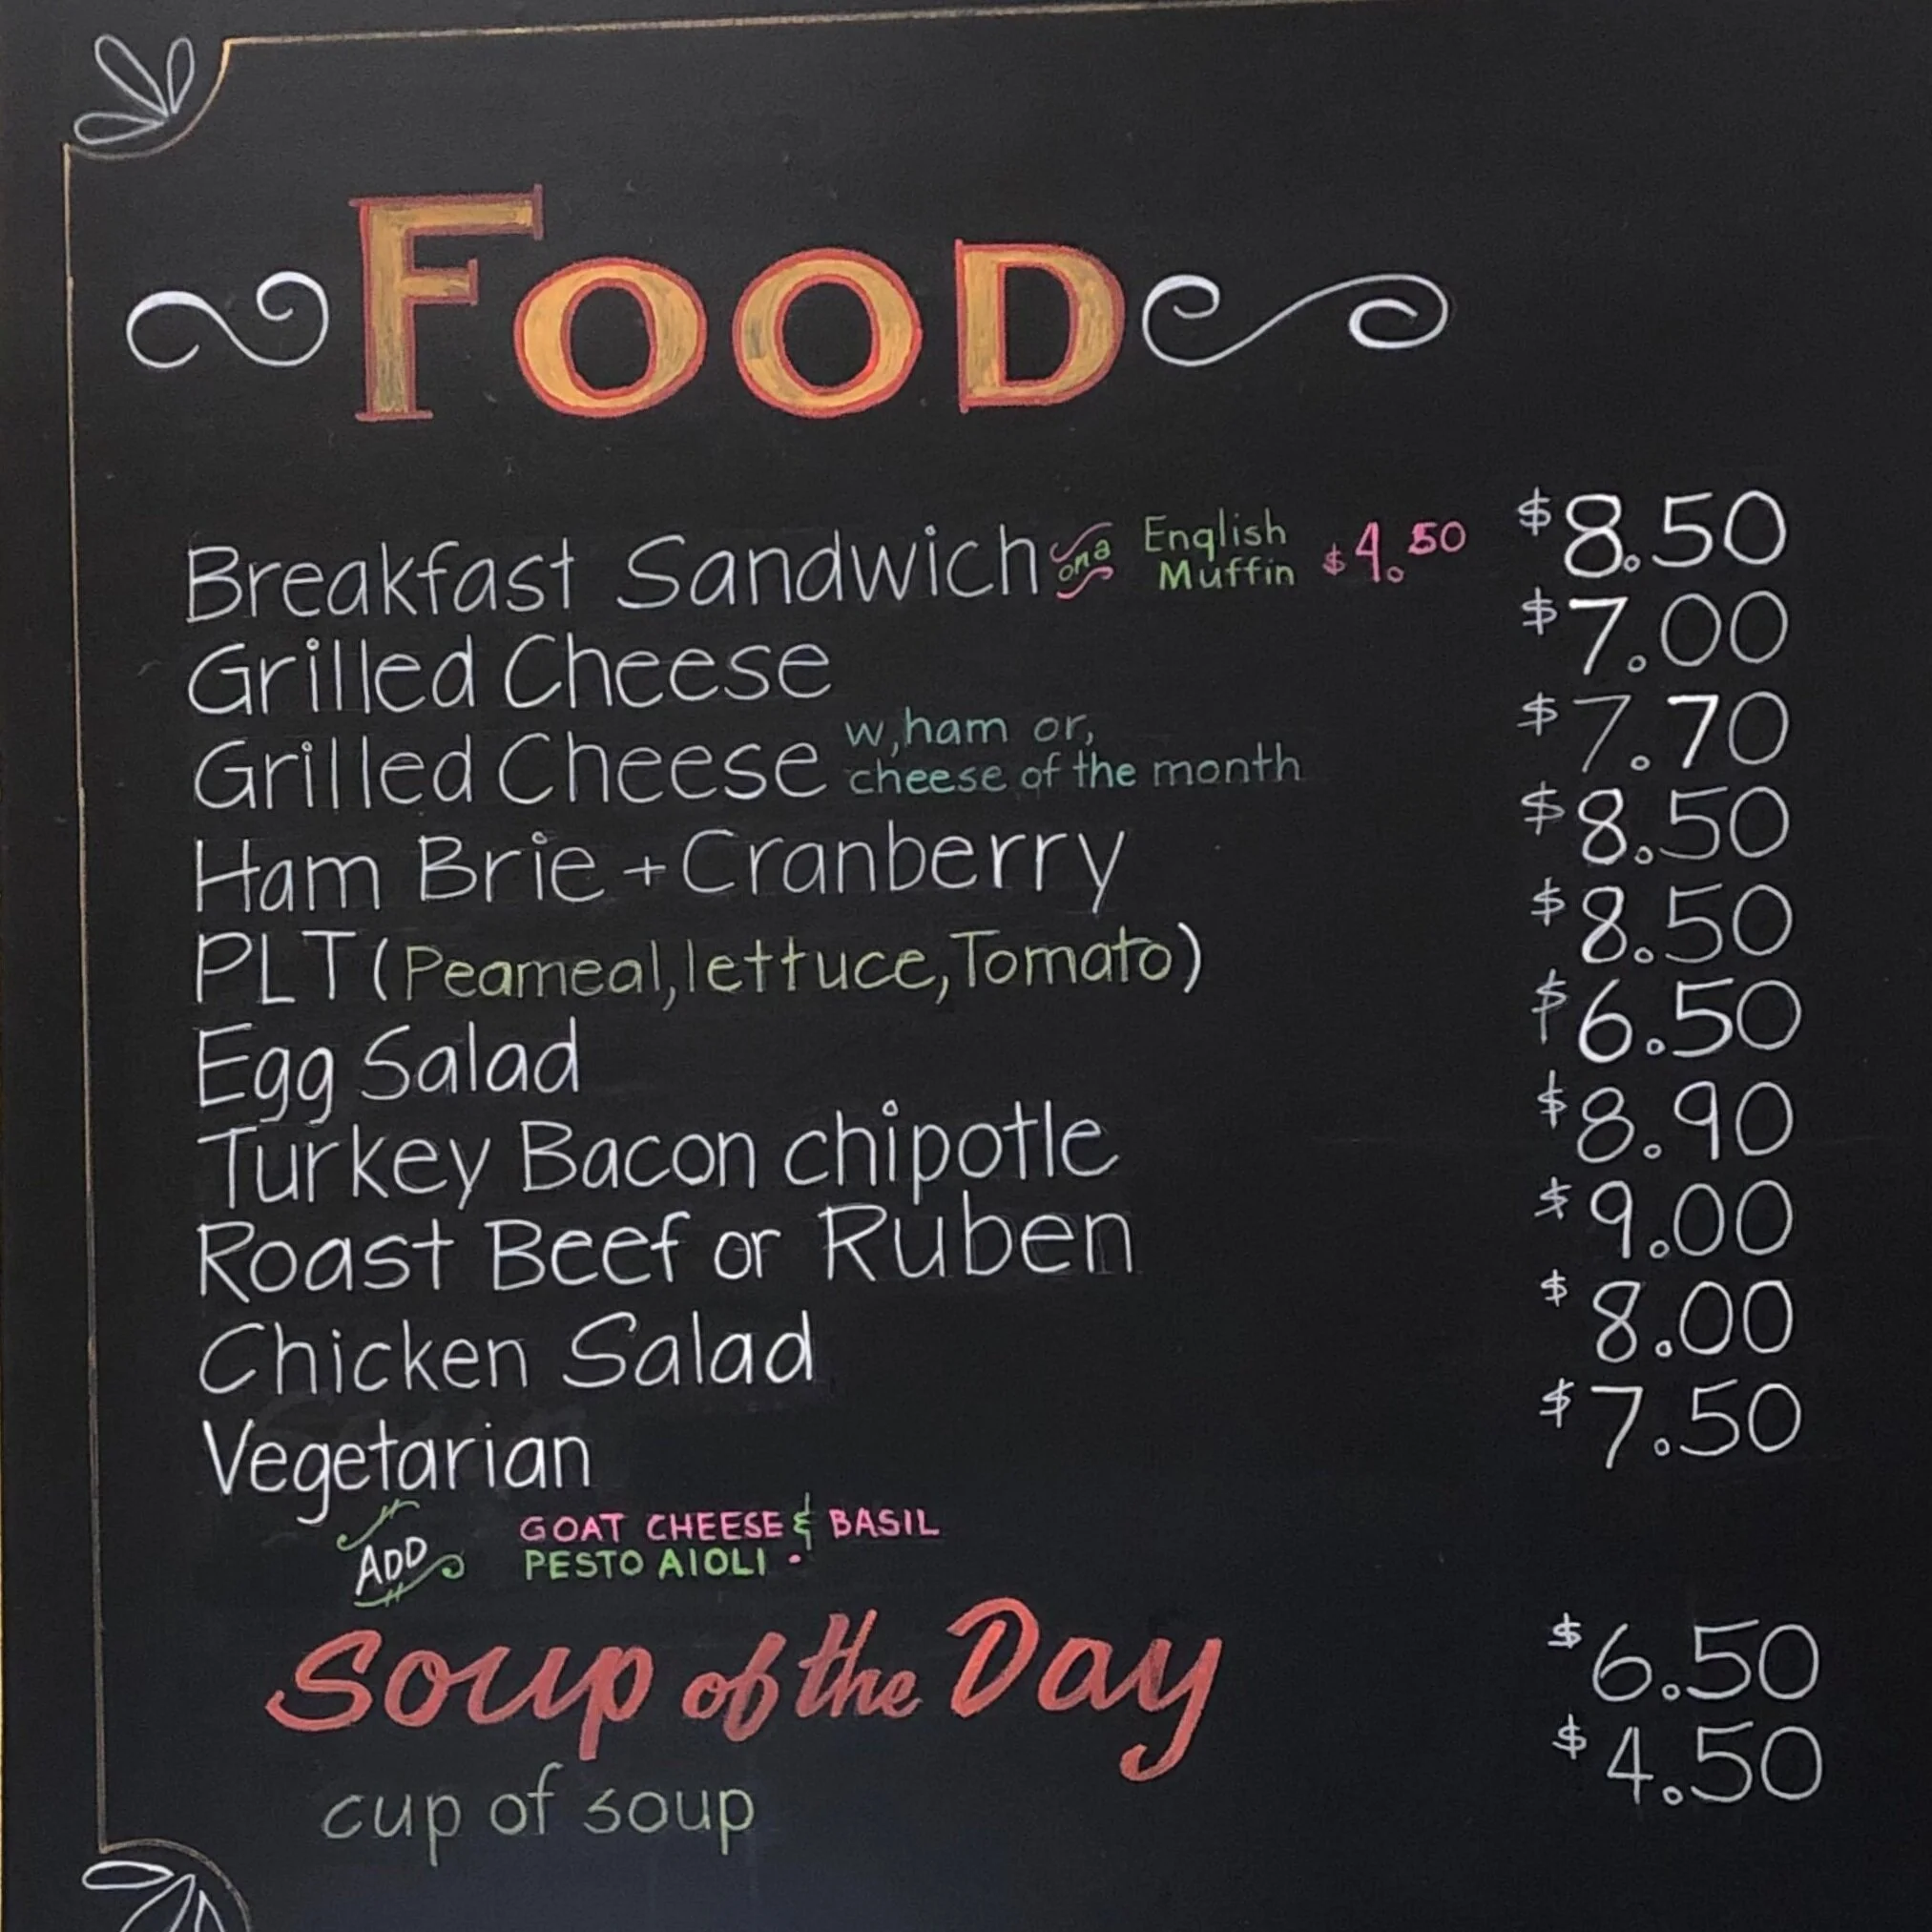 FOOD
Breakfast Sandwich on a English Muffin $4.50 $8.50
Grilled Cheese $7.00
Grilled Cheese w, ham or, cheese of the month $7.70
Ham Brie + Cranberry $8.50
PLT (Peameal, lettuce, Tomato) $8.50
Egg Salad $6.50
Turkey Bacon chipotle $8.90
Roast Beef or Ruben $9.00
Chicken Salad $8.00
Vegetarian $7.50
ADD GOAT CHEESE & BASIL
PESTO AIOLI.
Soup of the Day $6.50
cup of soup $4.50